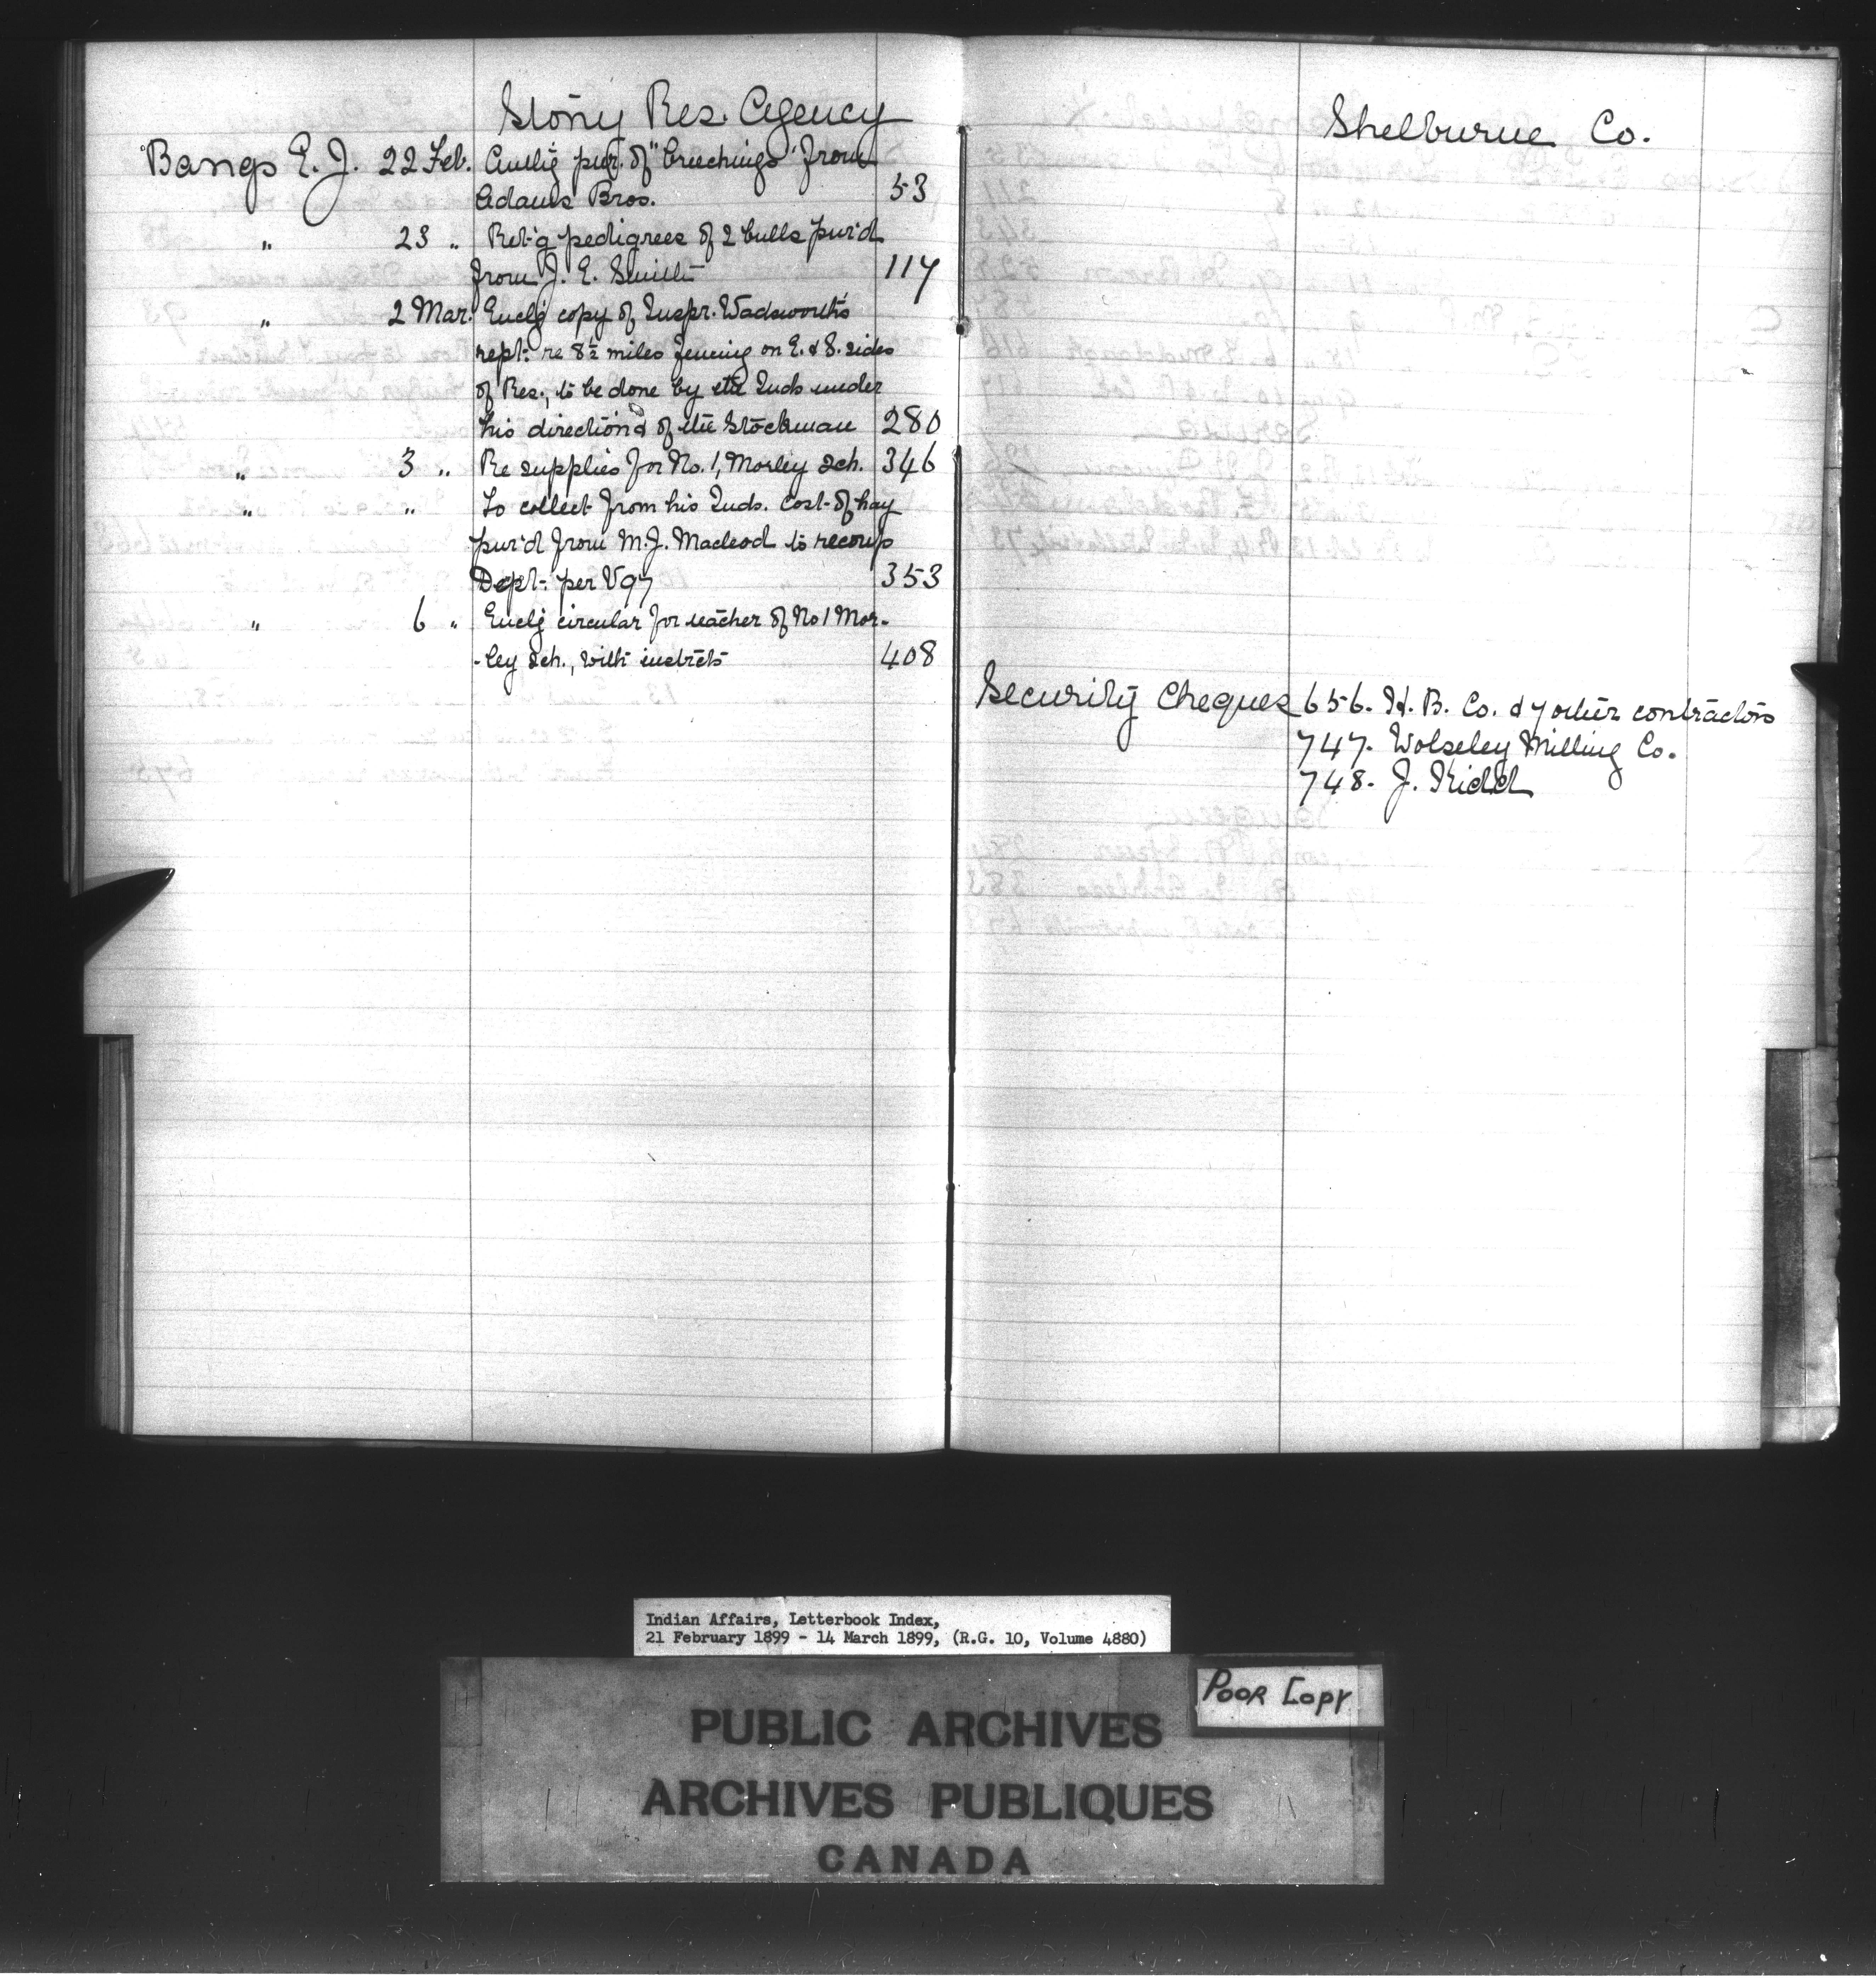 Stony Res. Agency
Bangs E. J. 22 Feb. Authg pur. of "breechings" from
Adams Bros. 53
" 23 " Ret'g pedigrees of 2 bulls pur'd
from J. E. Smith 117
" 2 Mar. Enclg copy of Inspr. Wadsworth's
rept. re 8½ miles fencing on E. & S. sides
of Res., to be done by the Inds under
his direction & of the Stockman 280
" 3 " Re supplies for No. 1, Morley Sch. 346
" " To collect from his Inds. cost of hay
pur'd from M. J. Macleod to recoup
Dept. per V97 353
" 6 " Enclg circular for teacher of No 1 Mor-
-ley Sch., with instrcts 408
Shelburne Co.
Security Cheques 656. H. B. Co. & 7 other contractors
747. Wolseley Milling Co.
748. J. Kidd
Indian Affairs, Letterbook Index,
21 February 1899 - 14 March 1899, (R.G. 10, Volume 4880)
POOR COPY
PUBLIC ARCHIVES
ARCHIVES PUBLIQUES
CANADA